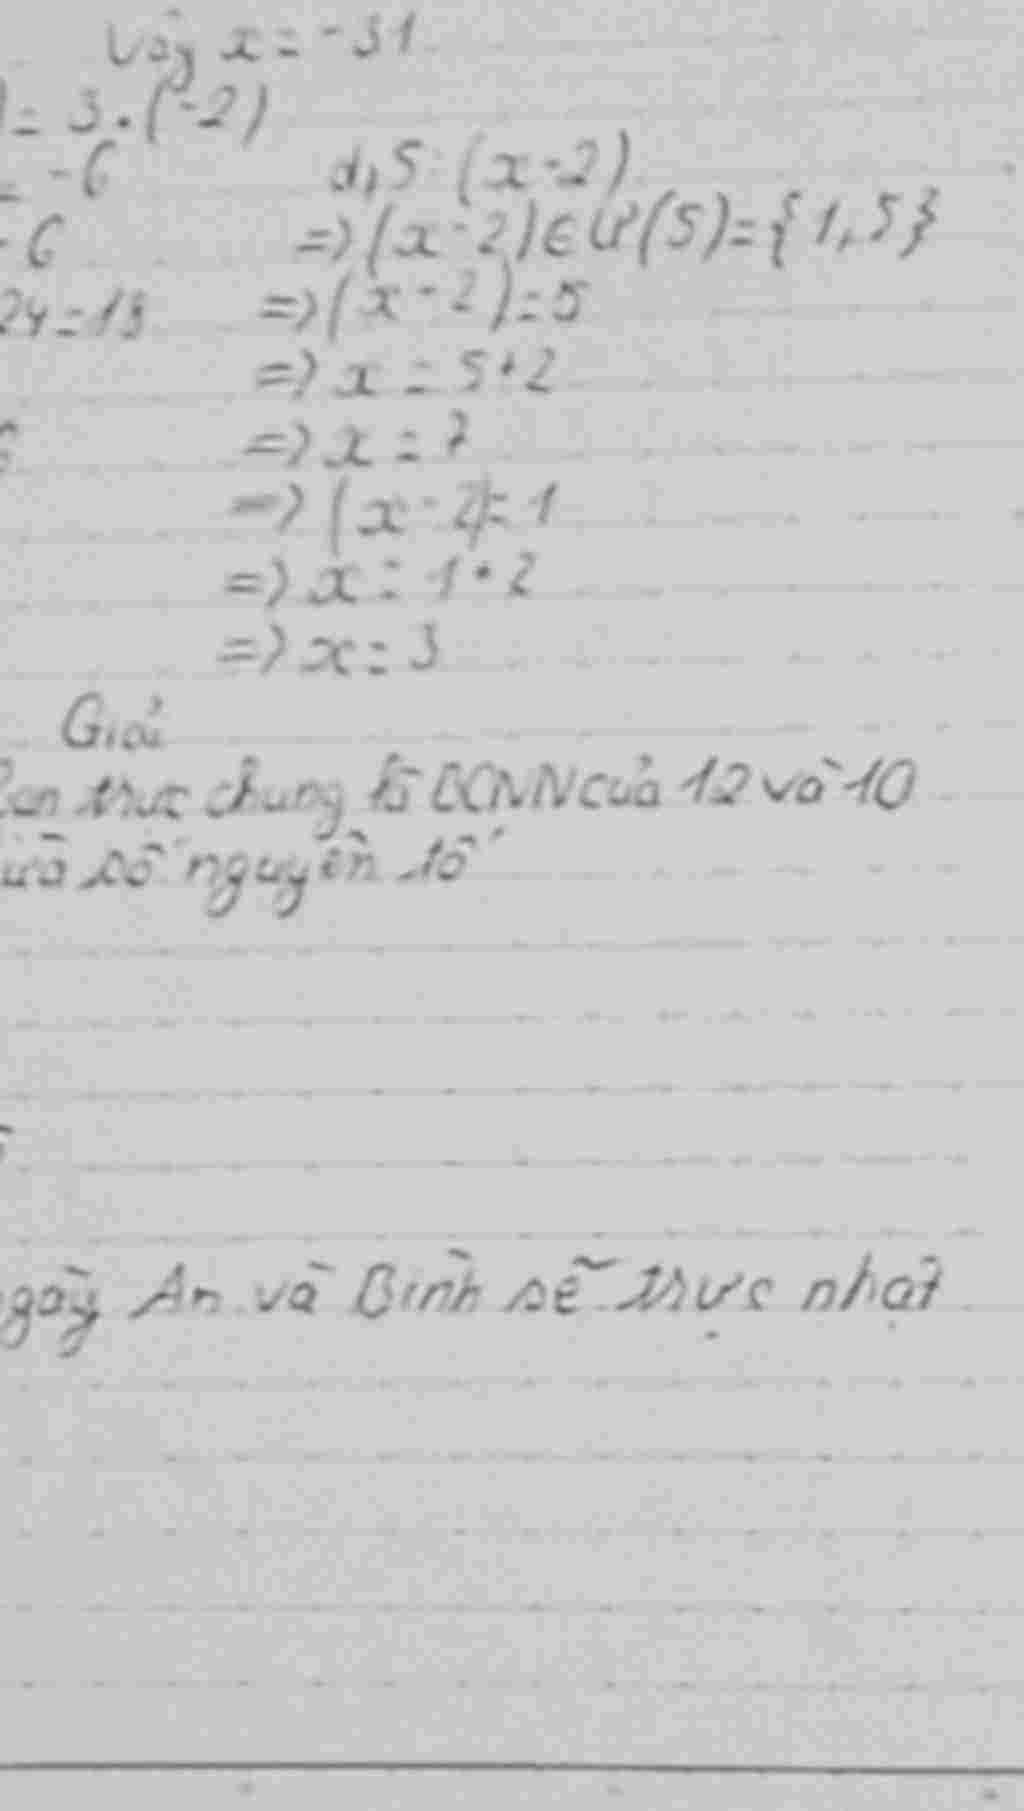 Vậy x = -31
) = 3.(-2)
= -6
d, 5 : (x-2)
- 6
=> (x-2) ∈ Ư(5) = {1, 5}
24 = 18
=> (x-2) = 5
=> x = 5+2
=> x = 7
=> (x-2) = 1
=> x = 1+2
=> x = 3
Giải
trực chung là BCNN của 12 và 10
số nguyên tố
An và Bình sẽ trực nhật